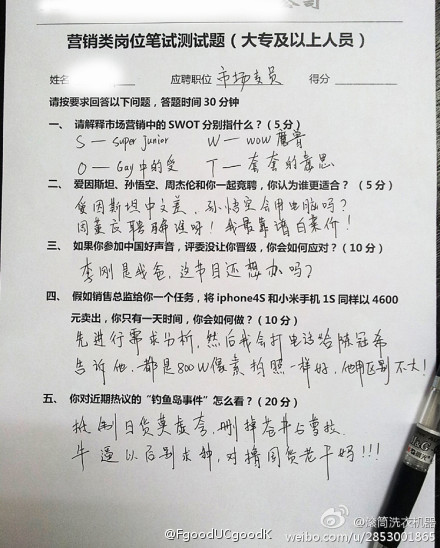 公司
营销类岗位笔试测试题（大专及以上人员）
姓名 应聘职位 市场专员 得分
请按要求回答以下问题，答题时间30分钟
一、 请解释市场营销中的SWOT分别指什么？（5分）
S — super junior W — wow 魔兽
O — Gay中的受 T — 套套的意思
二、 爱因斯坦、孙悟空、周杰伦和你一起竞聘，你认为谁更适合？（5分）
爱因斯坦中文差，孙悟空会用电脑吗？
周董应聘 呀！我最靠谱白菜价！
三、 如果你参加中国好声音，评委没让你晋级，你会如何应对？（10分）
李刚是我爸，这节目还想办吗？
四、 假如销售总监给你一个任务，将iphone4S和小米手机1S同样以4600
元卖出，你只有一天时间，你会如何做？（10分）
先进行需求分析，然后我会打电话给陈冠希
告诉他，都是800W像素，拍照一样好，他用区别不大！
五、 你对近期热议的“钓鱼岛事件”怎么看？（20分）
抵制日货莫虚夸，删掉苍井与
牛 以后别求种，对撸国货老干妈！！！
@FgoodUCgoodK
@滚筒洗衣机器
weibo.com/u/2853001865